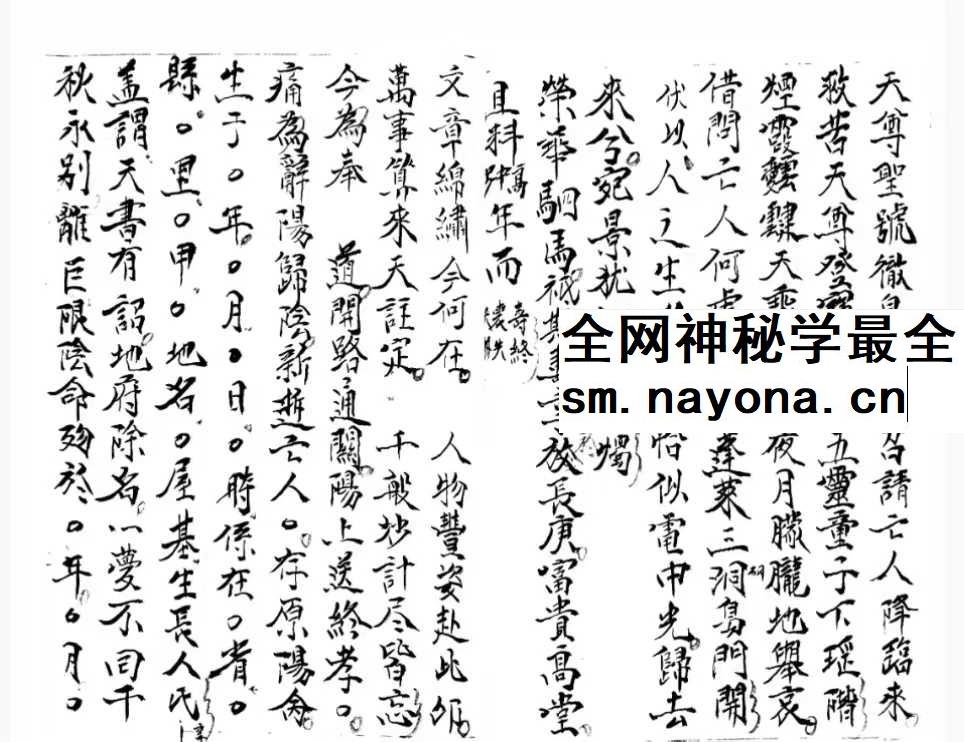 天尊聖號徹
召請亡人降臨來
救苦天尊登寶
五靈童子下瑤階
煙霞靉靆天乘
夜月朦朧地舉哀
借問亡人何處
蓬萊三洞島門開
伏以人之生
恰似電中光歸去
來兮宛景犹
燭
榮華駟馬祇其
放長庚富貴高堂
且料 年而
壽終
文章綿繡今何在
人物豐姿赴此
萬事算來天註定
千般妙計尽皆忘
今為奉 道開路通關陽上送終孝○
痛為辭陽歸陰新逝亡人○存原陽命
生于○年○月○日○時係在○省○
縣○里○甲○地名○屋基生長人氏
盖謂天書有詔地府除名一夢不回千
秋永别離 限陰命殁於○年○月○
全网神秘学最全
sm.nayona.cn